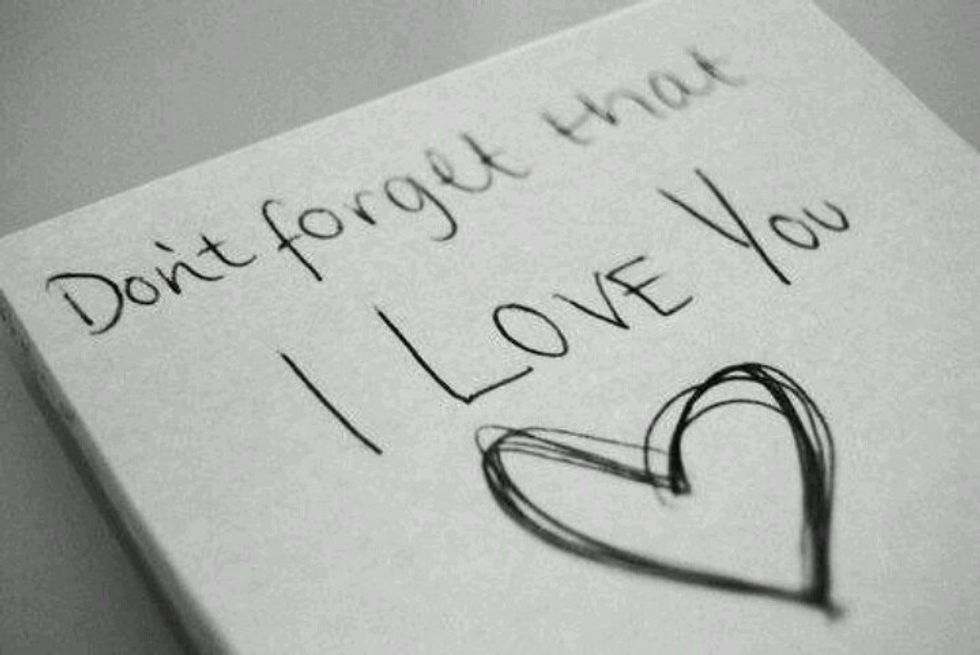 Don't forget that
I LOVE You